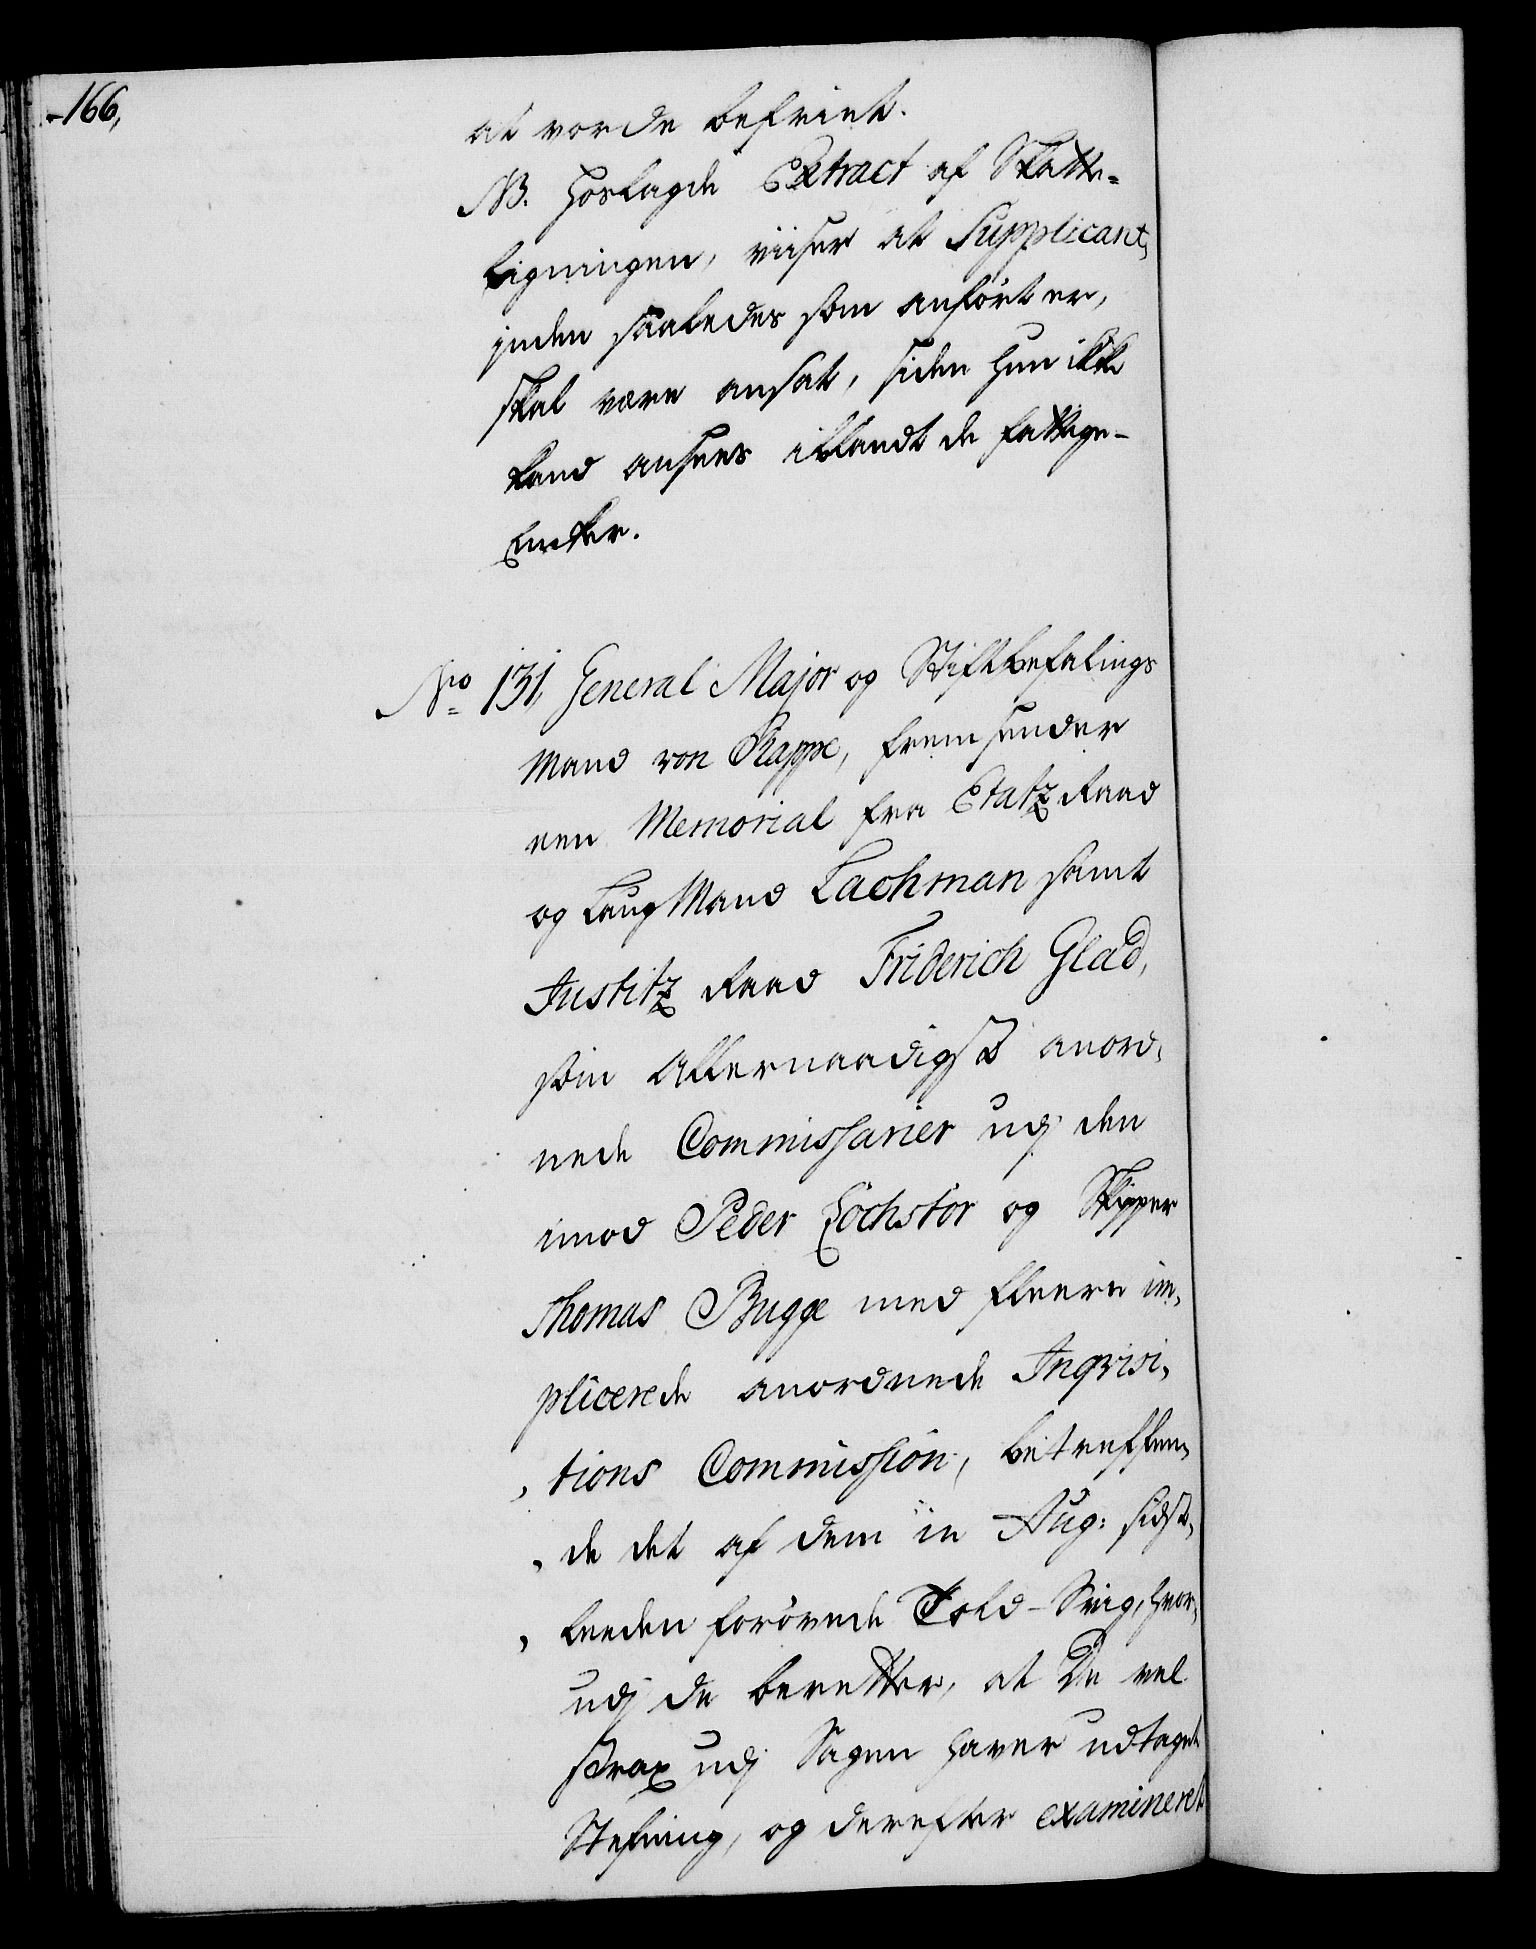 166,
at vorde befriet.
NB. hoslagde Extract af Skatte-
ligningen, viiser at Supplicant,
inden saaledes som anført er,
skal være ansat, siden hun ikke
kand ansees iblandt de fattige
Encker.
No 131, General Major og Stiftbefalings
Mand von Rappe, fremsender
een Memorial fra Etatz Raad
og Laug Mand Lachman samt
Justitz Raad Friderich Glad,
som Allernaadigst anord,
nede Commissarier udj den
imod Peder Höchstör og Skipper
Thomas Bugge med fleere im,
plicerede anordnede Inqvisi,
tions Commission, betreffen,
de det af dem in Aug: sidst,
leeden forövede Told-Svig, hvor,
udj de beretter, at de vel
strax udj Sagen haver udtaget
Stefning, og derefter examineret